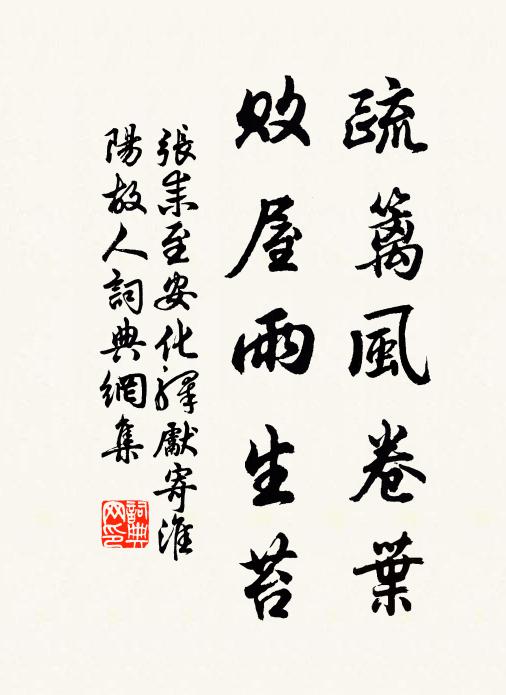 疏籬風卷葉
敗屋雨生苔
張耒至安化驛獻寄淮
陽故人詞典網集
詞典
网印